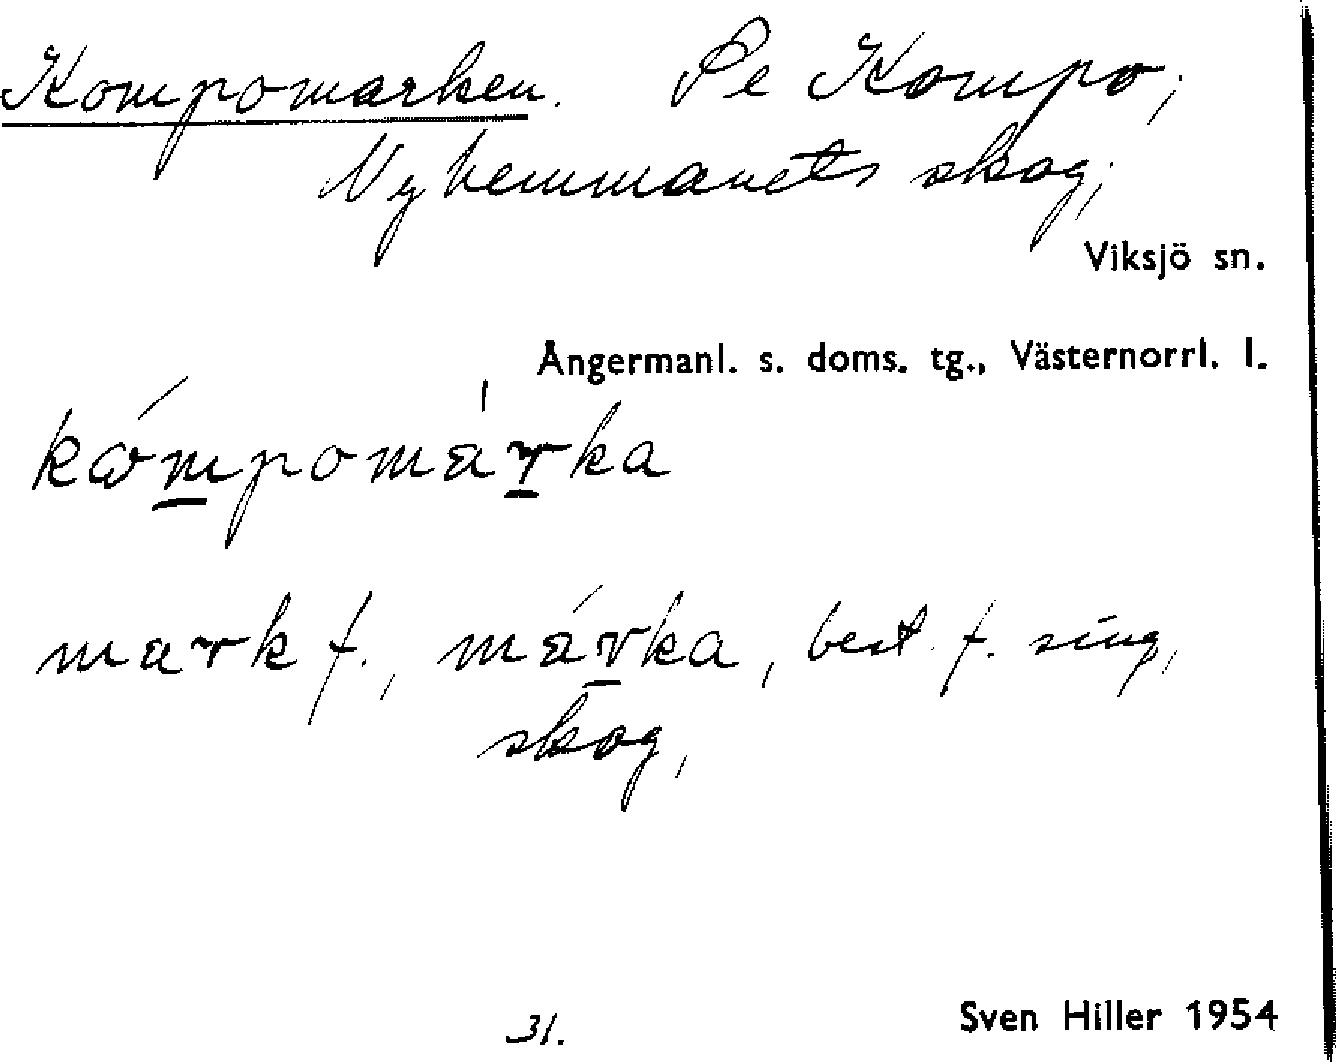 Kompomarken. Pe Kompo;
Nyhemmanets skog;
Viksjö sn.
Ångermanl. s. doms. tg., Västernorrl. l.
kɷ́mpomàrka
mark f., márka, best. f. sing,
skog,
31.
Sven Hiller 1954